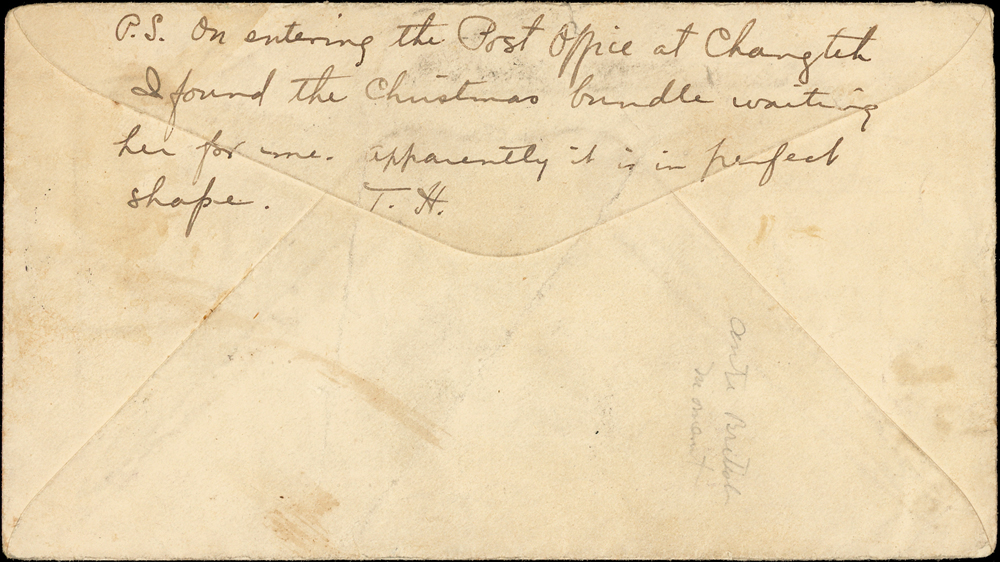 P.S. On entering the Post Office at Changteh
I found the Christmas bundle waiting
her for me. apparently it is in perfect
shape. T. H.
British